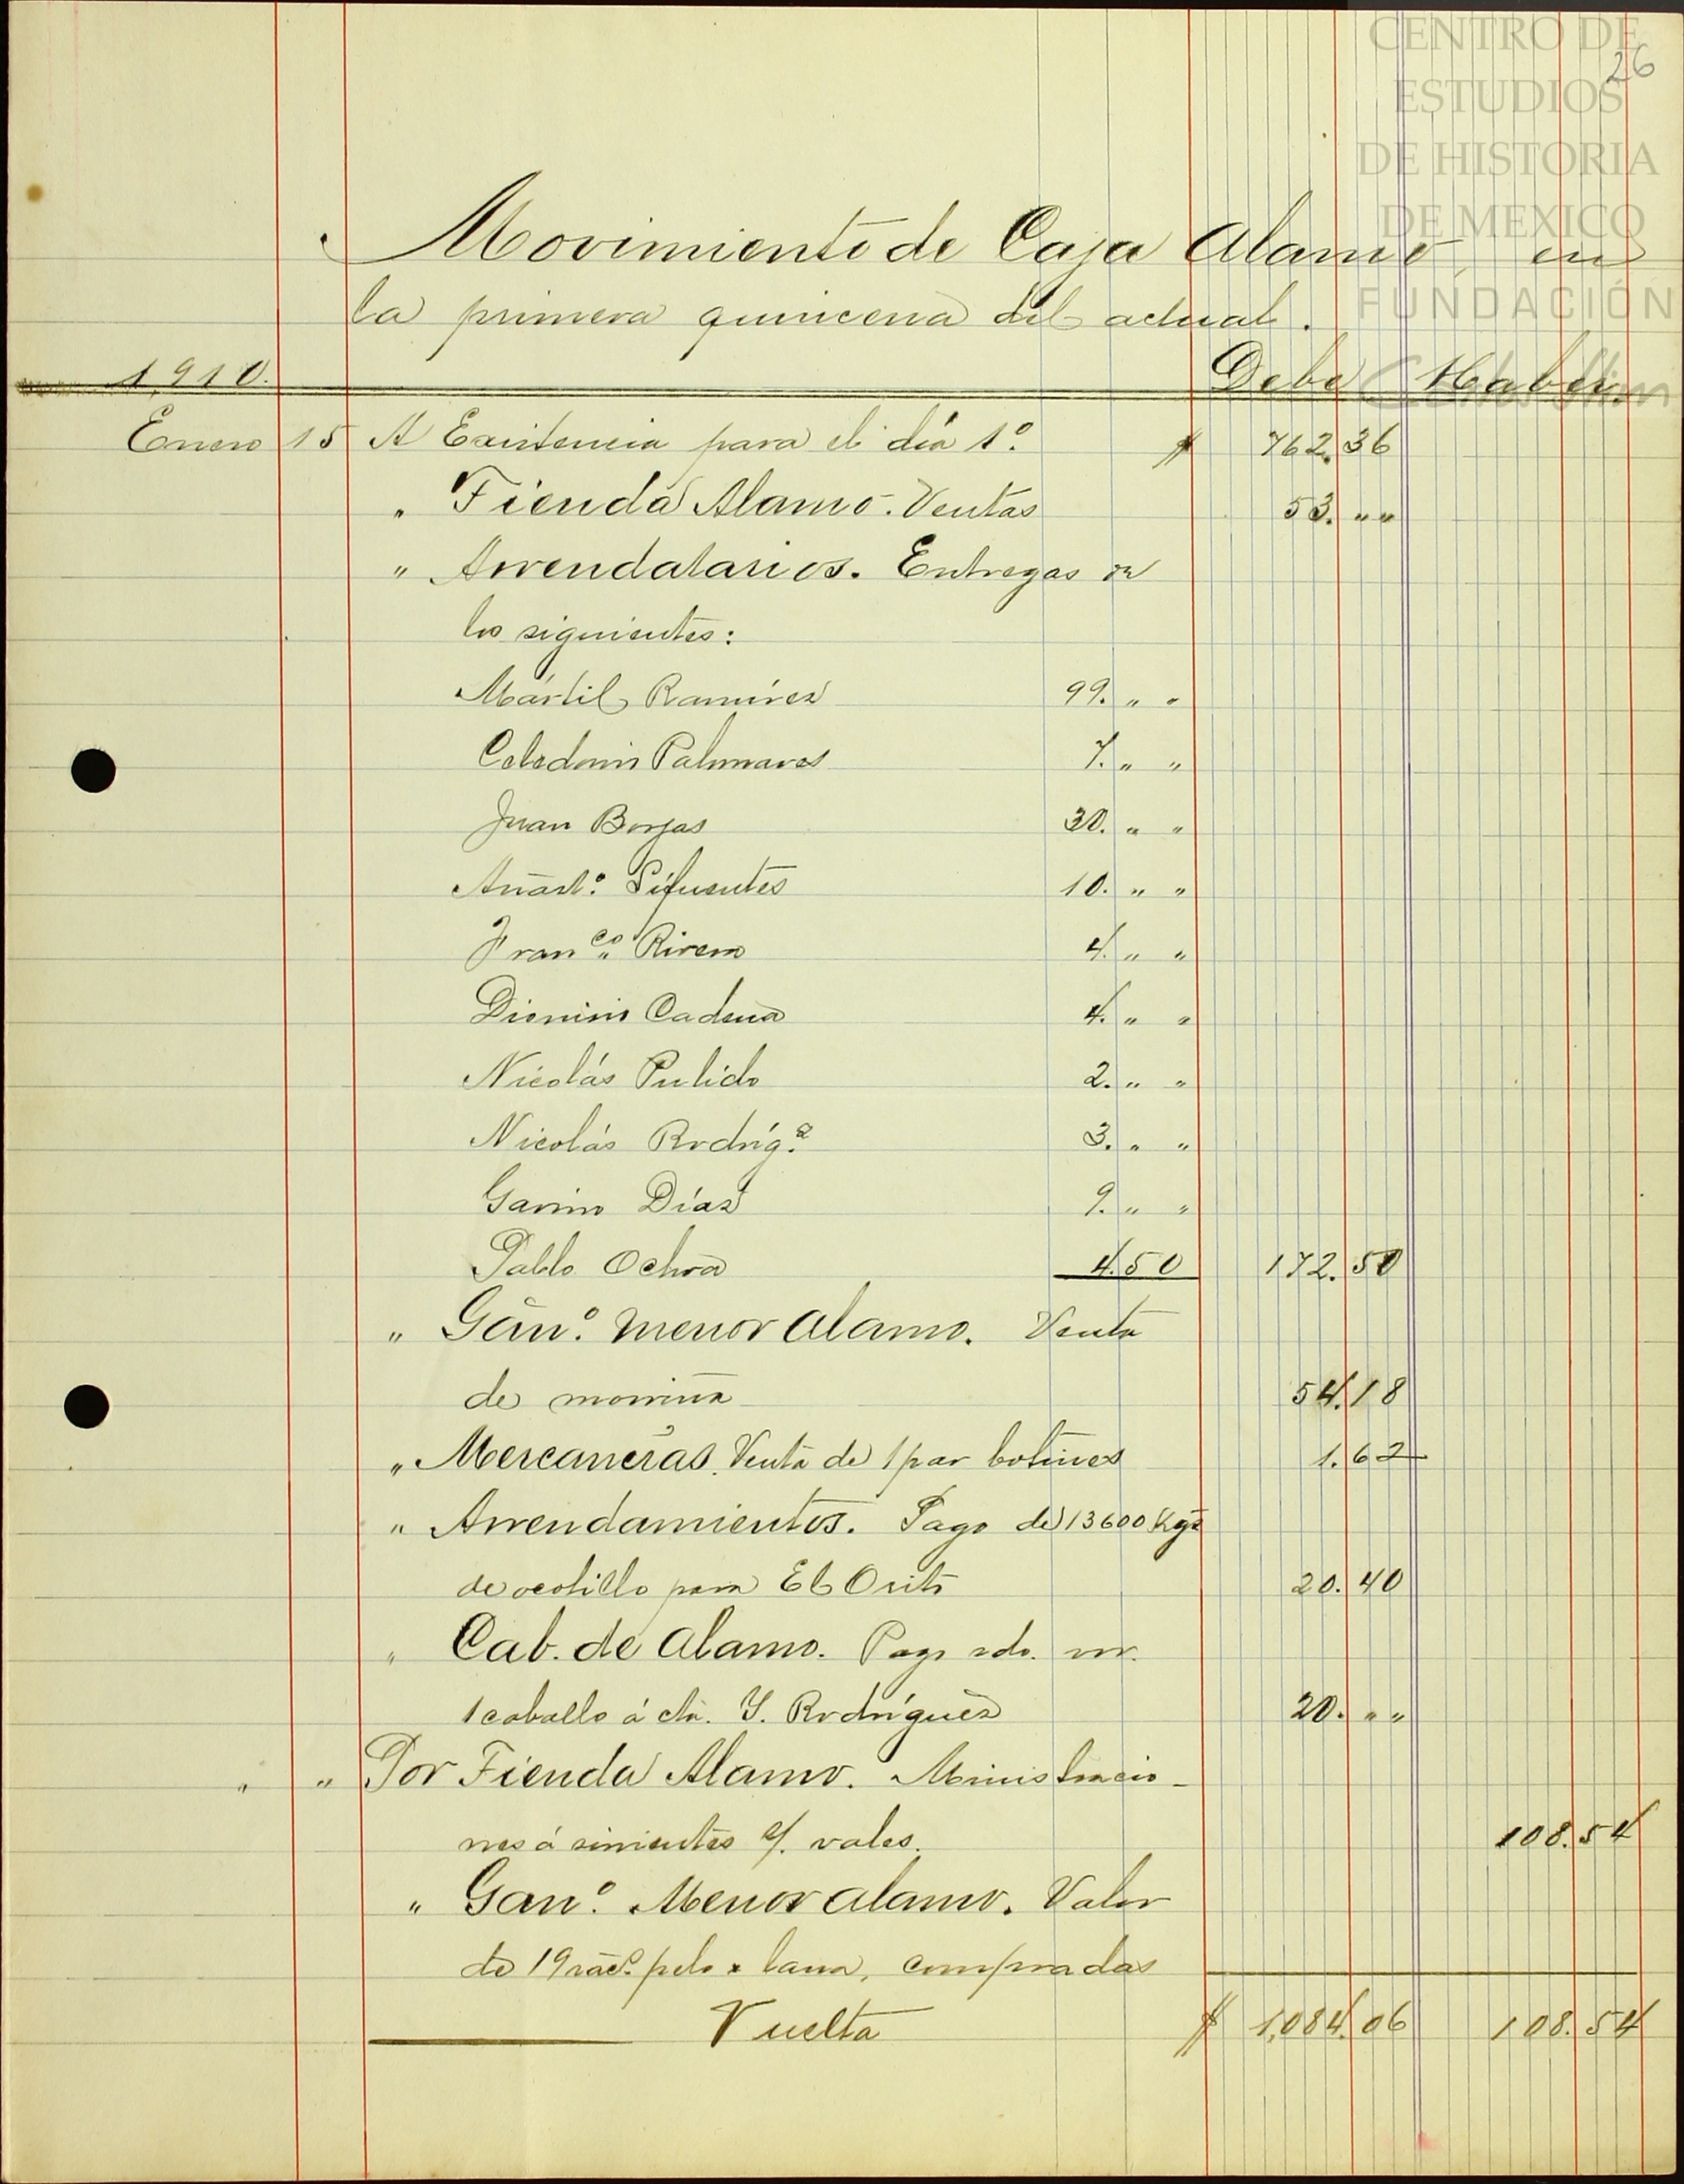 CENTRO DE
26
ESTUDIOS
DE HISTORIA
DE MEXICO
FUNDACIÓN
Movimiento de Caja Alamo, en
la primera quincena del actual.
1,910. Debe Haber
Enero 15 A Existencia para el día 1º. $ 762.36
" Tienda Alamo. Ventas 53. " "
" Arrendatarios. Entregas de
los siguientes:
Mártil Ramírez 99. " "
Celedonio Palomares 7. " "
Juan Borjas 30. " "
Anastº. Sifuentes 10. " "
Franco. Rivera 4. " "
Dionisio Cadena 4. " "
Nicolás Pulido 2. " "
Nicolás Rodrígz. 3. " "
Gavino Díaz 9. " "
Pablo Ochoa 4.50 172.50
" Ganº. Menor Alamo. Venta
de morriña 54.18
" Mercancías. Venta de 1 par botines 1.62
" Arrendamientos. Pago de 13600 Kgs
de ocotillo para El Orito 20.40
" Cab. de Alamo. Pago
1 caballo á cta. Y. Rodríguez 20. " "
" " Por Tienda Alamo. Ministracio-
nes á sirvientes s/. vales. 108.54
" Ganº. Menor Alamo. Valor
de 19 pelo x lana, compradas
Vuelta $ 1,084.06 108.54